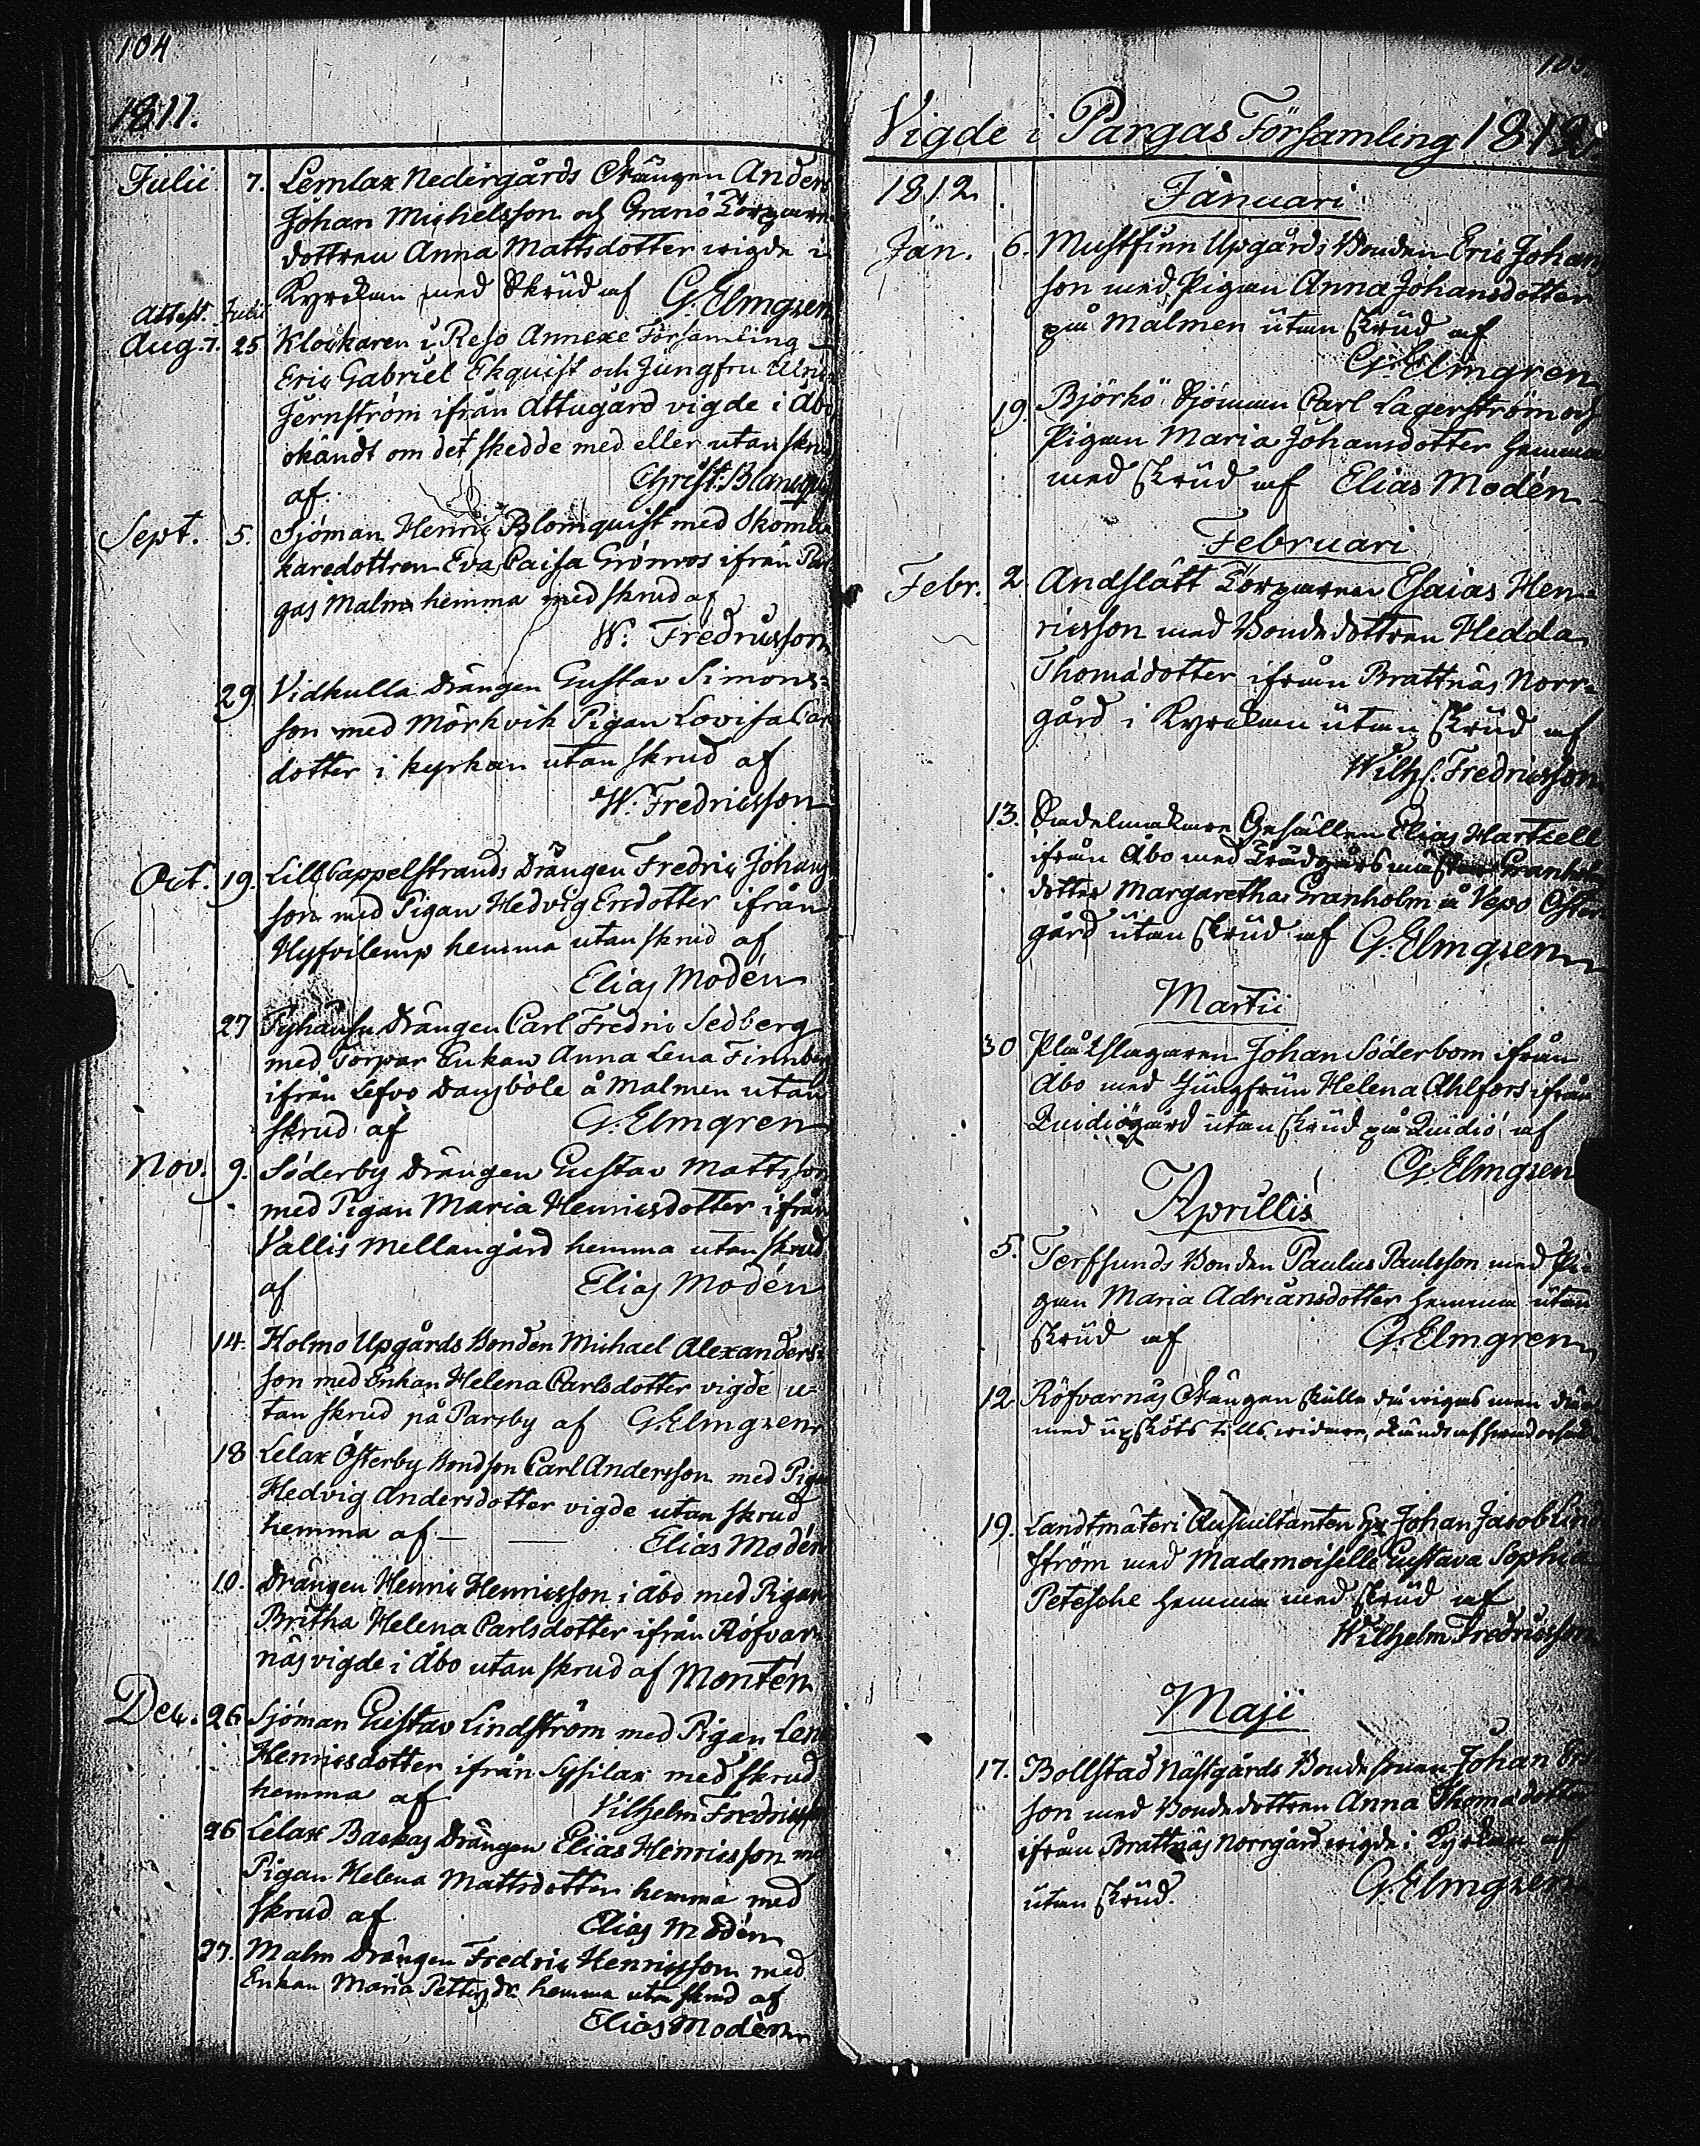 104
1811.
Julii 7. Lemlax Nedergårds Drängen Anders
Johan Michelsson och Granö Torpare
dottren Anna Mattsdotter wigde i
Kyrckan med Skrud af G. Elmgren
Attest. Julii
Aug. 7. 25 Klockaren i Reso Annexe Församling
Eric Gabriel Ekquist och Jungfru Ulrica
Jernström ifrån Attugård vigde i Åbo
okändt om det skedde med eller utan skrud
af Christ: Blanquist
Sept. 5. Sjöman Henric Blomquist med Skoma
karedottren Eva Caisa Grönroos ifrån Par
gas Malm hemma med skrud af
W. Fredricsson
29 Vidkulla Drängen Gustav Simons
son med Mörkvik Pigan Lovisa Carls
dotter i kyrkan utan skrud af
W. Fredricsson
Oct. 19. Lill Cappelstrands Drängen Fredric Johans
son med Pigan Hedvig Ersdotter ifrån
Hyfvilemp hemma utan skrud af
Elias Modén
27 Tyhänsu Drängen Carl Fredric Sedberg
med Torpar Enkan Anna Lena Finnberg
ifrån Lefvo Dansböle å Malmen utan
skrud af G. Elmgren
Nov. 9. Söderby Drängen Gustav Mattsson
med Pigan Maria Henricsdotter ifrån
Vallis Mellangård hemma utan skrud
af Elias Modén
14. Holmo Upgårds Bonden Michael Alexanders
son med Enkan Helena Carlsdotter vigde u=
tan skrud på Parsby af G. Elmgren
18 Lelax Österby Bondson Carl Andersson med Pigan
Hedvig Andersdotter vigde utan skrud
hemma af — Elias Modén
10. Drängen Henric Henricsson i Åbo med Pigan
Britha Helena Carlsdotter ifrån Röfvar
näs vigde i Åbo utan skrud af Montén
Dec. 26 Sjöman Gustav Lindström med Pigan Lena
Henricsdotter ifrån Sysilax med skrud
hemma af Vilhelm Fredricsson
26 Lelax Backas Drängen Elias Henricsson med
Pigan Helena Mattsdotter hemma med
skrud af Elias Modén
27. Malm Drängen Fredric Henricsson med
Enkan Maria Petters dr hemma utan skrud af
Elias Modén
105.
Vigde i Pargas Församling 1812.
1812 Januari
Jan. 6. Mustfinn Upgårds Bonden Eric Johans
son med Pigan Anna Johansdotter
på Malmen utan skrud af
G. Elmgren
19. Björkö Sjöman Carl Lagerström och
Pigan Maria Johansdotter hemma
med skrud af Elias Modén
Februari
Febr. 2 Andslätt Torparen Esaias Hen=
ricsson med Bondedottren Hedda
Thomædotter ifrån Brattnäs Norr=
gård i Kyrckan utan skrud af
Wilh. Fredricsson
13. Sadelmakare Gesällen Elias Hartzell
ifrån Åbo med Trädgårdsmästar Granholm
dotter Margaretha Granholm å Vepo Öster
gård utan skrud af G. Elmgren
Martii
30 Plåtslagaren Johan Söderbom ifrån
Åbo med Jungfrun Helena Ahlfors ifrån
Quidiö gård utan skrud på Quidiö af
G. Elmgren
Aprillis
5. Terfsunds Bonden Paulus Paulsson med Pi=
gan Maria Adriansdotter hemma utan
skrud af G. Elmgren
12 Röfvarnäs Drängen skulle då wigas men där
med upsköts tills widare
19. Landtmäteri Auscultanten Hr Johan Jacob Lind
ström med Mademoiselle Gustava Sophia
Petesche hemma med skrud af
Wilhelm Fredricsson
Maji
17. Bollstad Nästgårds Bondesonen Johan Ers
son med Bondedottren Anna Thomædotter
ifrån Brattnäs Norrgård wigde i Kyrckan af
utan skrud. G. Elmgren